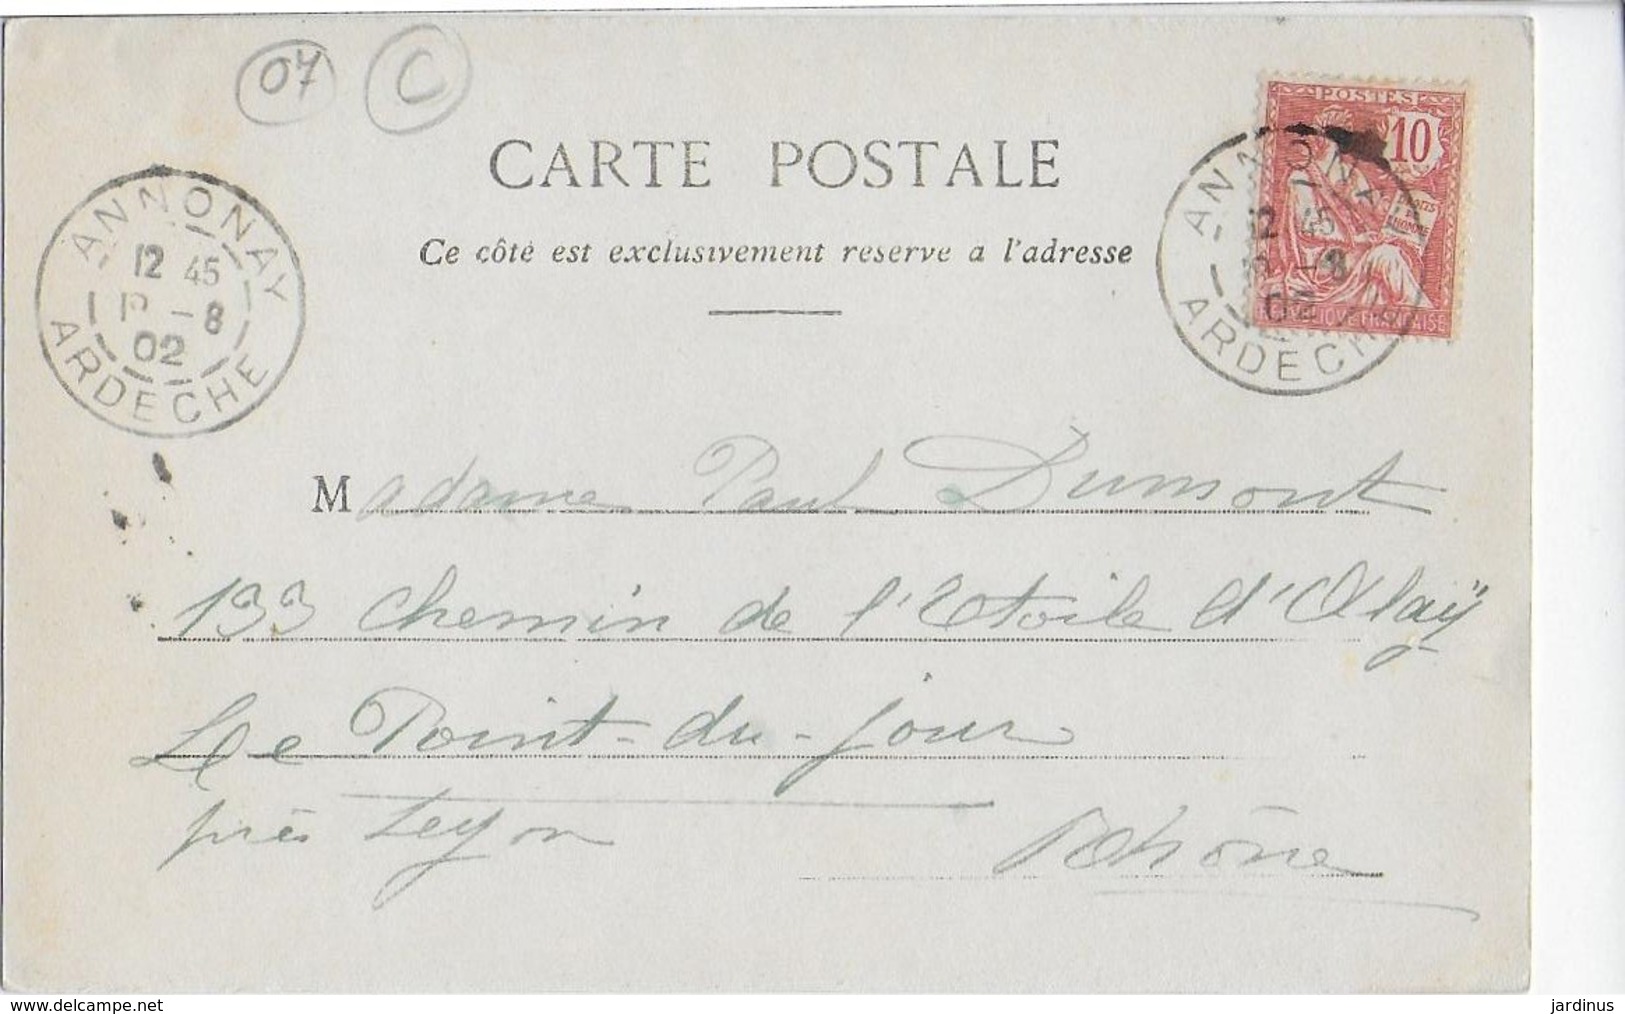 07 C
CARTE POSTALE
Ce côté est exclusivement reserve a l'adresse
ANNONAY
12 45
-8
02
ARDECHE
POSTES
10
DROITS DE L'HOMME
IQUE FRANÇAISE
ANNONAY
12 45
-8
02
ARDECHE
Madame Paul Dumont
133 chemin de l'Etoile d'Alaÿ
Le Point-du-jour
près Leyon
Rhône
www.delcampe.net
jardinus